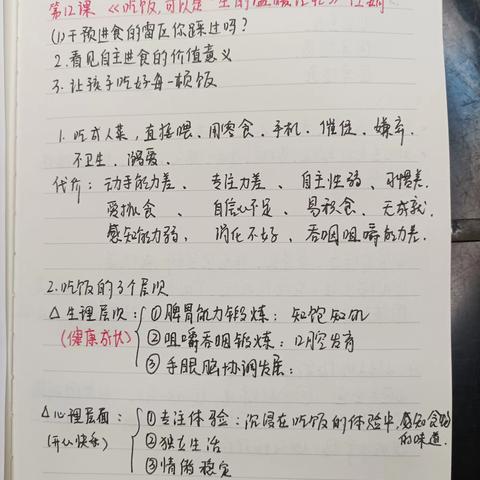 第12课 《吃饭,可以是一生的温暖记忆》
(1)干预进食的雷区你踩过吗?
2.看见自主进食的价值意义
3.让孩子吃好每一顿饭
1.吃成人菜,直接喂、用零食、手机、催促、嫌弃、
不卫生、溺爱、
代价:动手能力差、专注力差、自主性弱、习惯差、
爱挑食、自信心不足、易积食、无成就、
感知能力弱、消化不好、吞咽咀嚼能力差.
2.吃饭的3个层次
△生理层次:①脾胃能力锻炼:知饱知饥
(健康成长) ②咀嚼吞咽锻炼:口腔发育
③手眼脑协调发展:
△心理层面:①专注体验:沉浸在吃饭的体验中,感知食物
的味道.
(开心快乐) ②独立生活
③情绪稳定